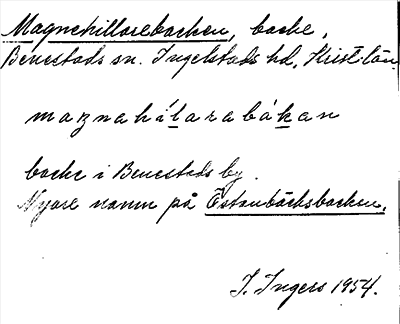 Magnehillarebacken, backe,
Benestads sn. Ingelstads hd, Krist:län.
maznahílarabákan
backe i Benestads by.
Nyare namn på Östanbäcksbacken.
I. Ingers 1954.